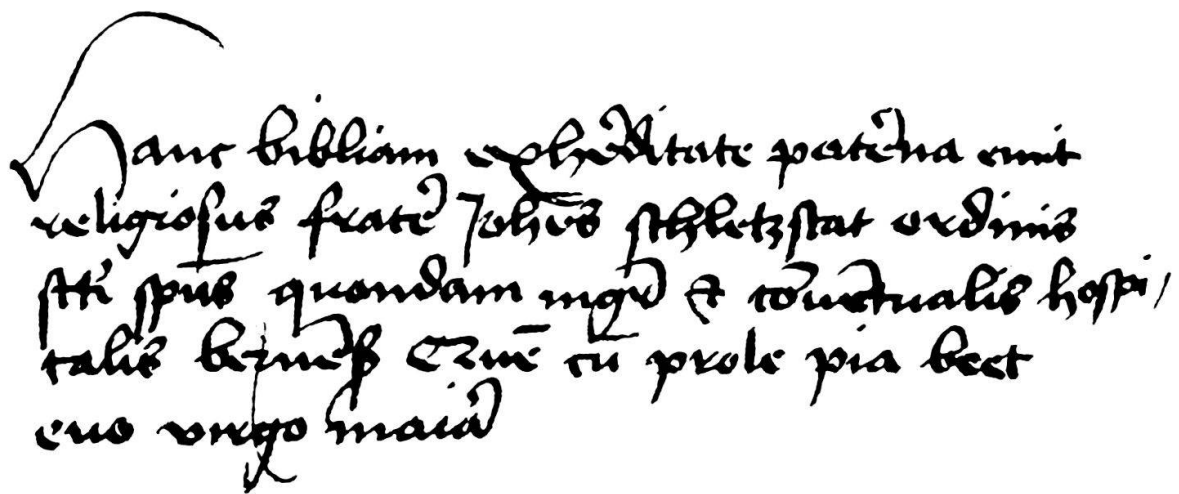 Hanc bibliam ex her̄ditate pater̄na emit
religiosus frater̄ Johēs schletzstat ordinis
sc̄ti sp̄us quondam mgr̄ & cōuētualis hospi/
talis bernēs̄ cū prole pia beet
euo virgo maiā